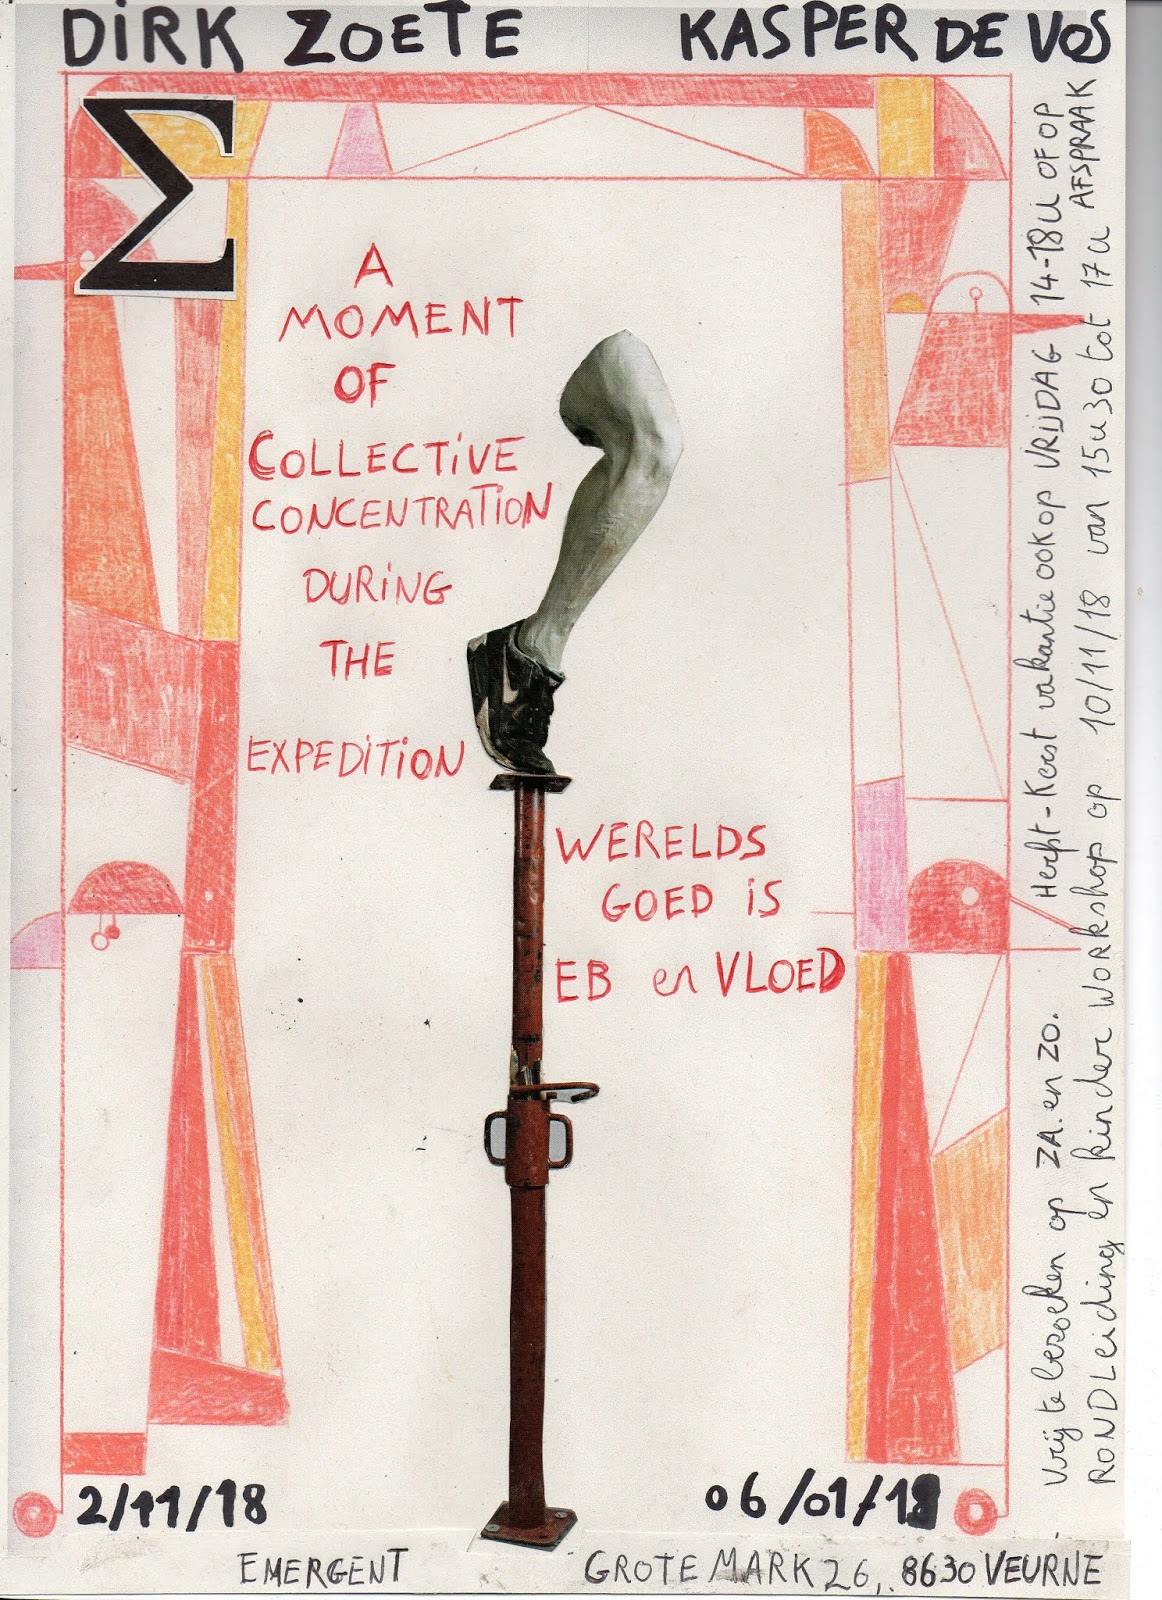 DiRK ZOETE KASPER DE VOS
Σ
A
MOMENT
OF
COLLECTiVE
CONCENTRATiON
DURiNG
THE
EXPEDiTiON
WERELDS
GOED iS
EB en VLOED
Vrij te bezoeken op ZA. en ZO. Herfst-Kerst vakantie ook op VRIJDAG 14-18u OF OP AFSPRAAK
RONDLeiding en kinder workshop op 10/11/18 van 15u30 tot 17u
2/11/18 06/01/18
EMERGENT GROTE MARK 26, 8630 VEURNE